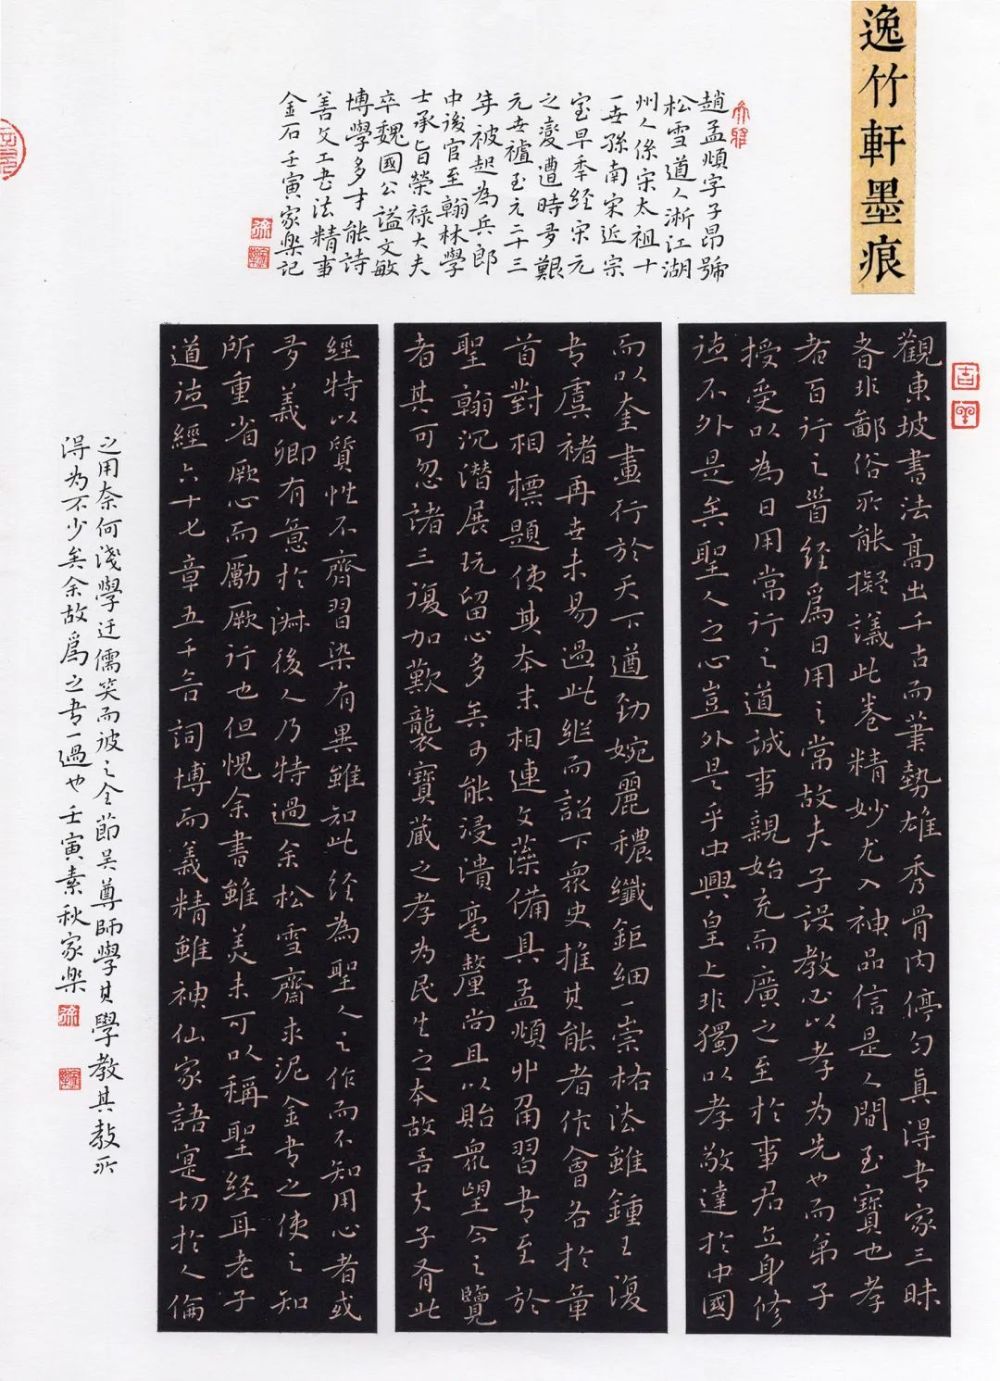 逸竹軒墨痕
趙孟頫字子昂號
松雪道人浙江湖
州人係宋太祖十
一世孫南宋近宗
室早年經宋元
之變遭時多艱
元世祖至元二十三
年被起為兵郎
中後官至翰林學
士承旨榮祿大夫
卒魏國公謚文敏
博學多才能詩
善文工书法精事
金石壬寅家樂記
觀東坡書法高出千古而筆勢雄秀骨肉停匀真得书家三昧
者非鄙俗所能擬議此卷精妙尤入神品信是人間至寶也孝
者百行之首經爲日用之常故夫子設教必以孝為先也而弟子
授受以為日用常行之道誠事親始充而廣之至於事君立身修
德不外是矣聖人之心豈外是乎由興皇上非獨以孝敬達於中國
而以奎畫行於天下遒勁婉麗穠纖鉅細一崇祐法雖鍾王復
书虞褚再世未易過此继而詔下眾史推其能者作會各於章
首對相標題使其本末相連文藻備具孟頫非甬習书至於
聖翰沉潛展玩留心多矣可能浸漬毫釐尚且以貽眾望今之覽
者其可忽諸三復加歎襲寶藏之孝为民生之本故吾夫子有此
經特以質性不齊習染有異雖知此经為聖人之作而不知用心者或
多義卿有意於淑後人乃特過余松雪齋求泥金书之使之知
所重省厥心而勵厥行也但愧余書雖美未可以稱聖经耳老子
道德經六十七章五千言詞博而義精雖神仙家語寔切於人倫
之用奈何淺學迂儒笑而被之全節吴尊師學其學教其教所
得为不少矣余故爲之书一過也壬寅素秋家樂